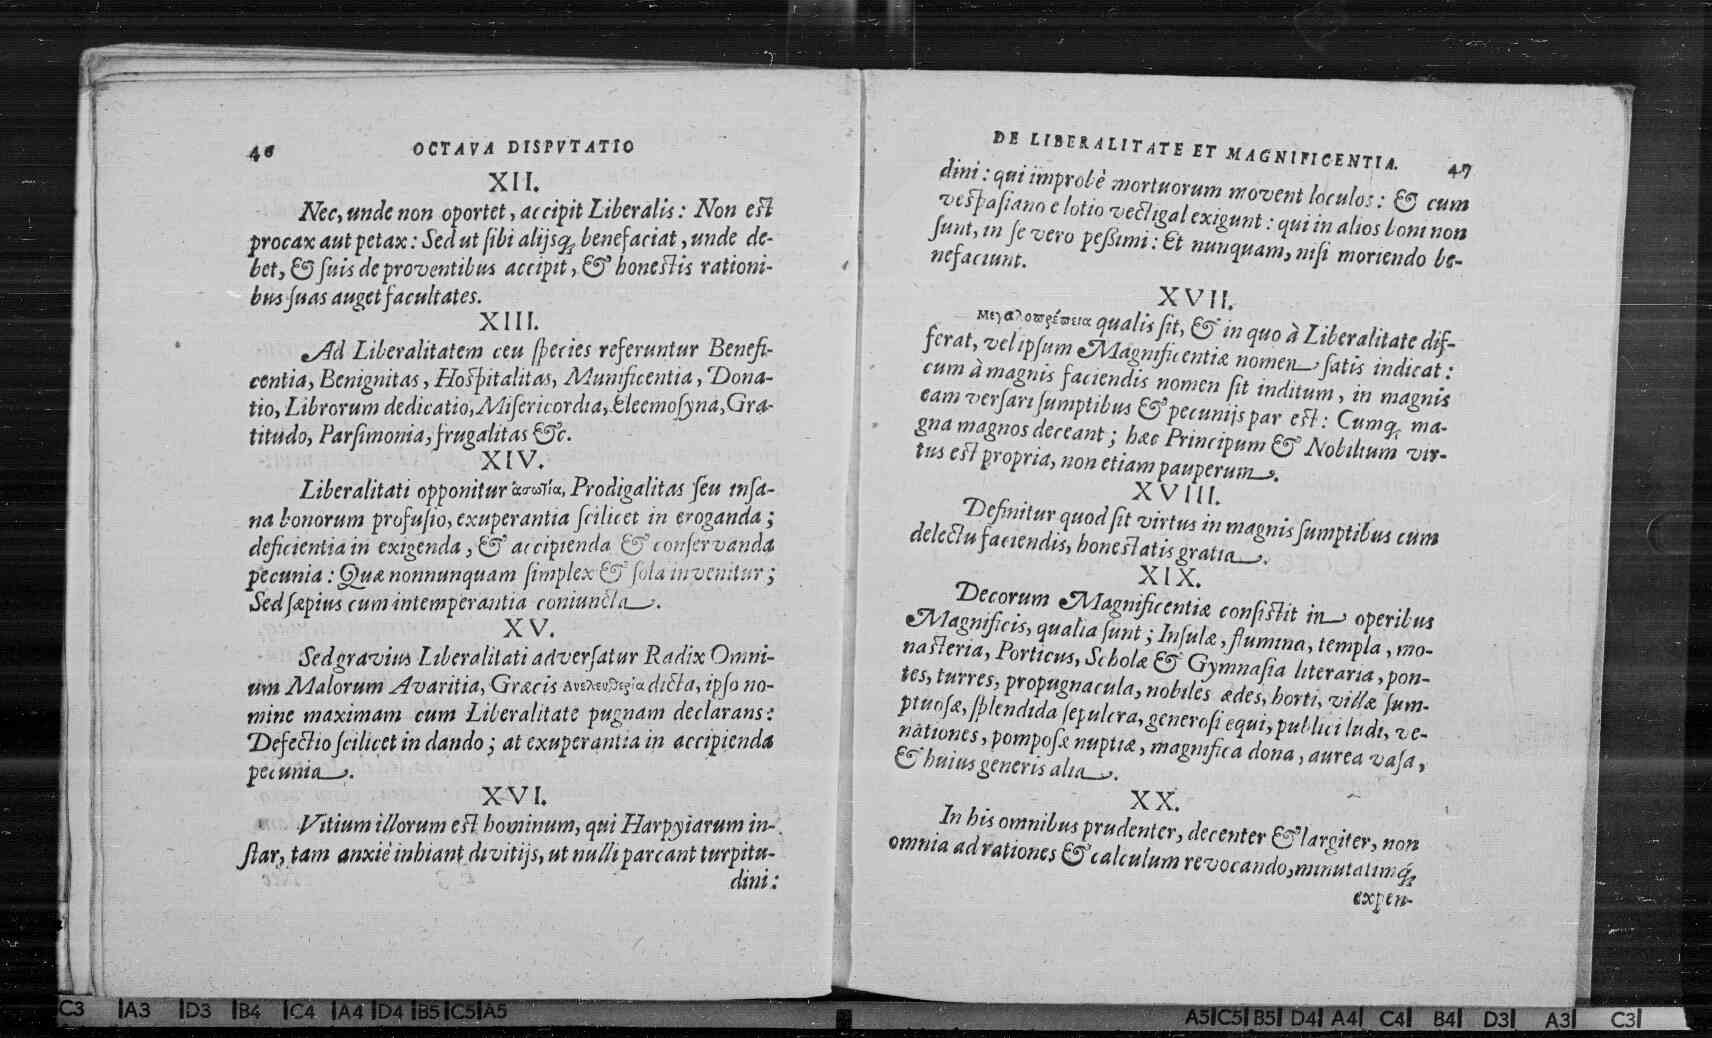 46 OCTAVA DISPVTATIO
XII.
Nec, unde non oportet, accipit Liberalis: Non est
procax aut petax: Sed ut sibi alijsq; benefaciat, unde de-
bet, & suis de proventibus accipit, & honestis rationi-
bus suas auget facultates.
XIII.
Ad Liberalitatem ceu species referuntur Benefi-
centia, Benignitas, Hospitalitas, Munificentia, Dona-
tio, Librorum dedicatio, Misericordia, Eleemosyna, Gra-
titudo, Parsimonia, frugalitas &c.
XIV.
Liberalitati opponitur ἀσωτία, Prodigalitas seu insa-
na bonorum profusio, exuperantia scilicet in eroganda;
deficientia in exigenda, & accipienda & conservanda
pecunia: Quæ nonnunquam simplex & sola invenitur;
Sed sæpius cum intemperantia coniuncta.
XV.
Sed gravius Liberalitati adversatur Radix Omni-
um Malorum Avaritia, Græcis Ανελευθερία dicta, ipso no-
mine maximam cum Liberalitate pugnam declarans:
Defectio scilicet in dando; at exuperantia in accipienda
pecunia.
XVI.
Vitium illorum est hominum, qui Harpyiarum in-
star, tam anxiè inhiant divitijs, ut nulli parcant turpitu-
dini:
DE LIBERALITATE ET MAGNIFICENTIA. 47
dini: qui improbè mortuorum movent loculos: & cum
vespasiano e lotio vectigal exigunt: qui in alios boni non
sunt, in se vero pessimi: Et nunquam, nisi moriendo be-
nefaciunt.
XVII.
Μεγαλοπρέπεια qualis sit, & in quo à Liberalitate dif-
ferat, vel ipsum Magnificentiæ nomen satis indicat:
cum à magnis faciendis nomen sit inditum, in magnis
eam versari sumptibus & pecunijs par est: Cumq; ma-
gna magnos deceant; hæc Principum & Nobilium vir-
tus est propria, non etiam pauperum.
XVIII.
Definitur quod sit virtus in magnis sumptibus cum
delectu faciendis, honestatis gratia.
XIX.
Decorum Magnificentiæ consistit in operibus
Magnificis, qualia sunt; Insulæ, flumina, templa, mo-
nasteria, Porticus, Scholæ & Gymnasia literaria, pon-
tes, turres, propugnacula, nobiles ædes, horti, villæ sum-
ptuosæ, splendida sepulcra, generosi equi, publici ludi, ve-
nationes, pomposæ nuptiæ, magnifica dona, aurea vasa,
& huius generis alia.
XX.
In his omnibus prudenter, decenter & largiter, non
omnia ad rationes & calculum revocando, minutatimq́;
expen-
C3 A3 D3 B4 C4 A4 D4 B5 C5 A5
A5 C5 B5 D4 A4 C4 B4 D3 A3 C3